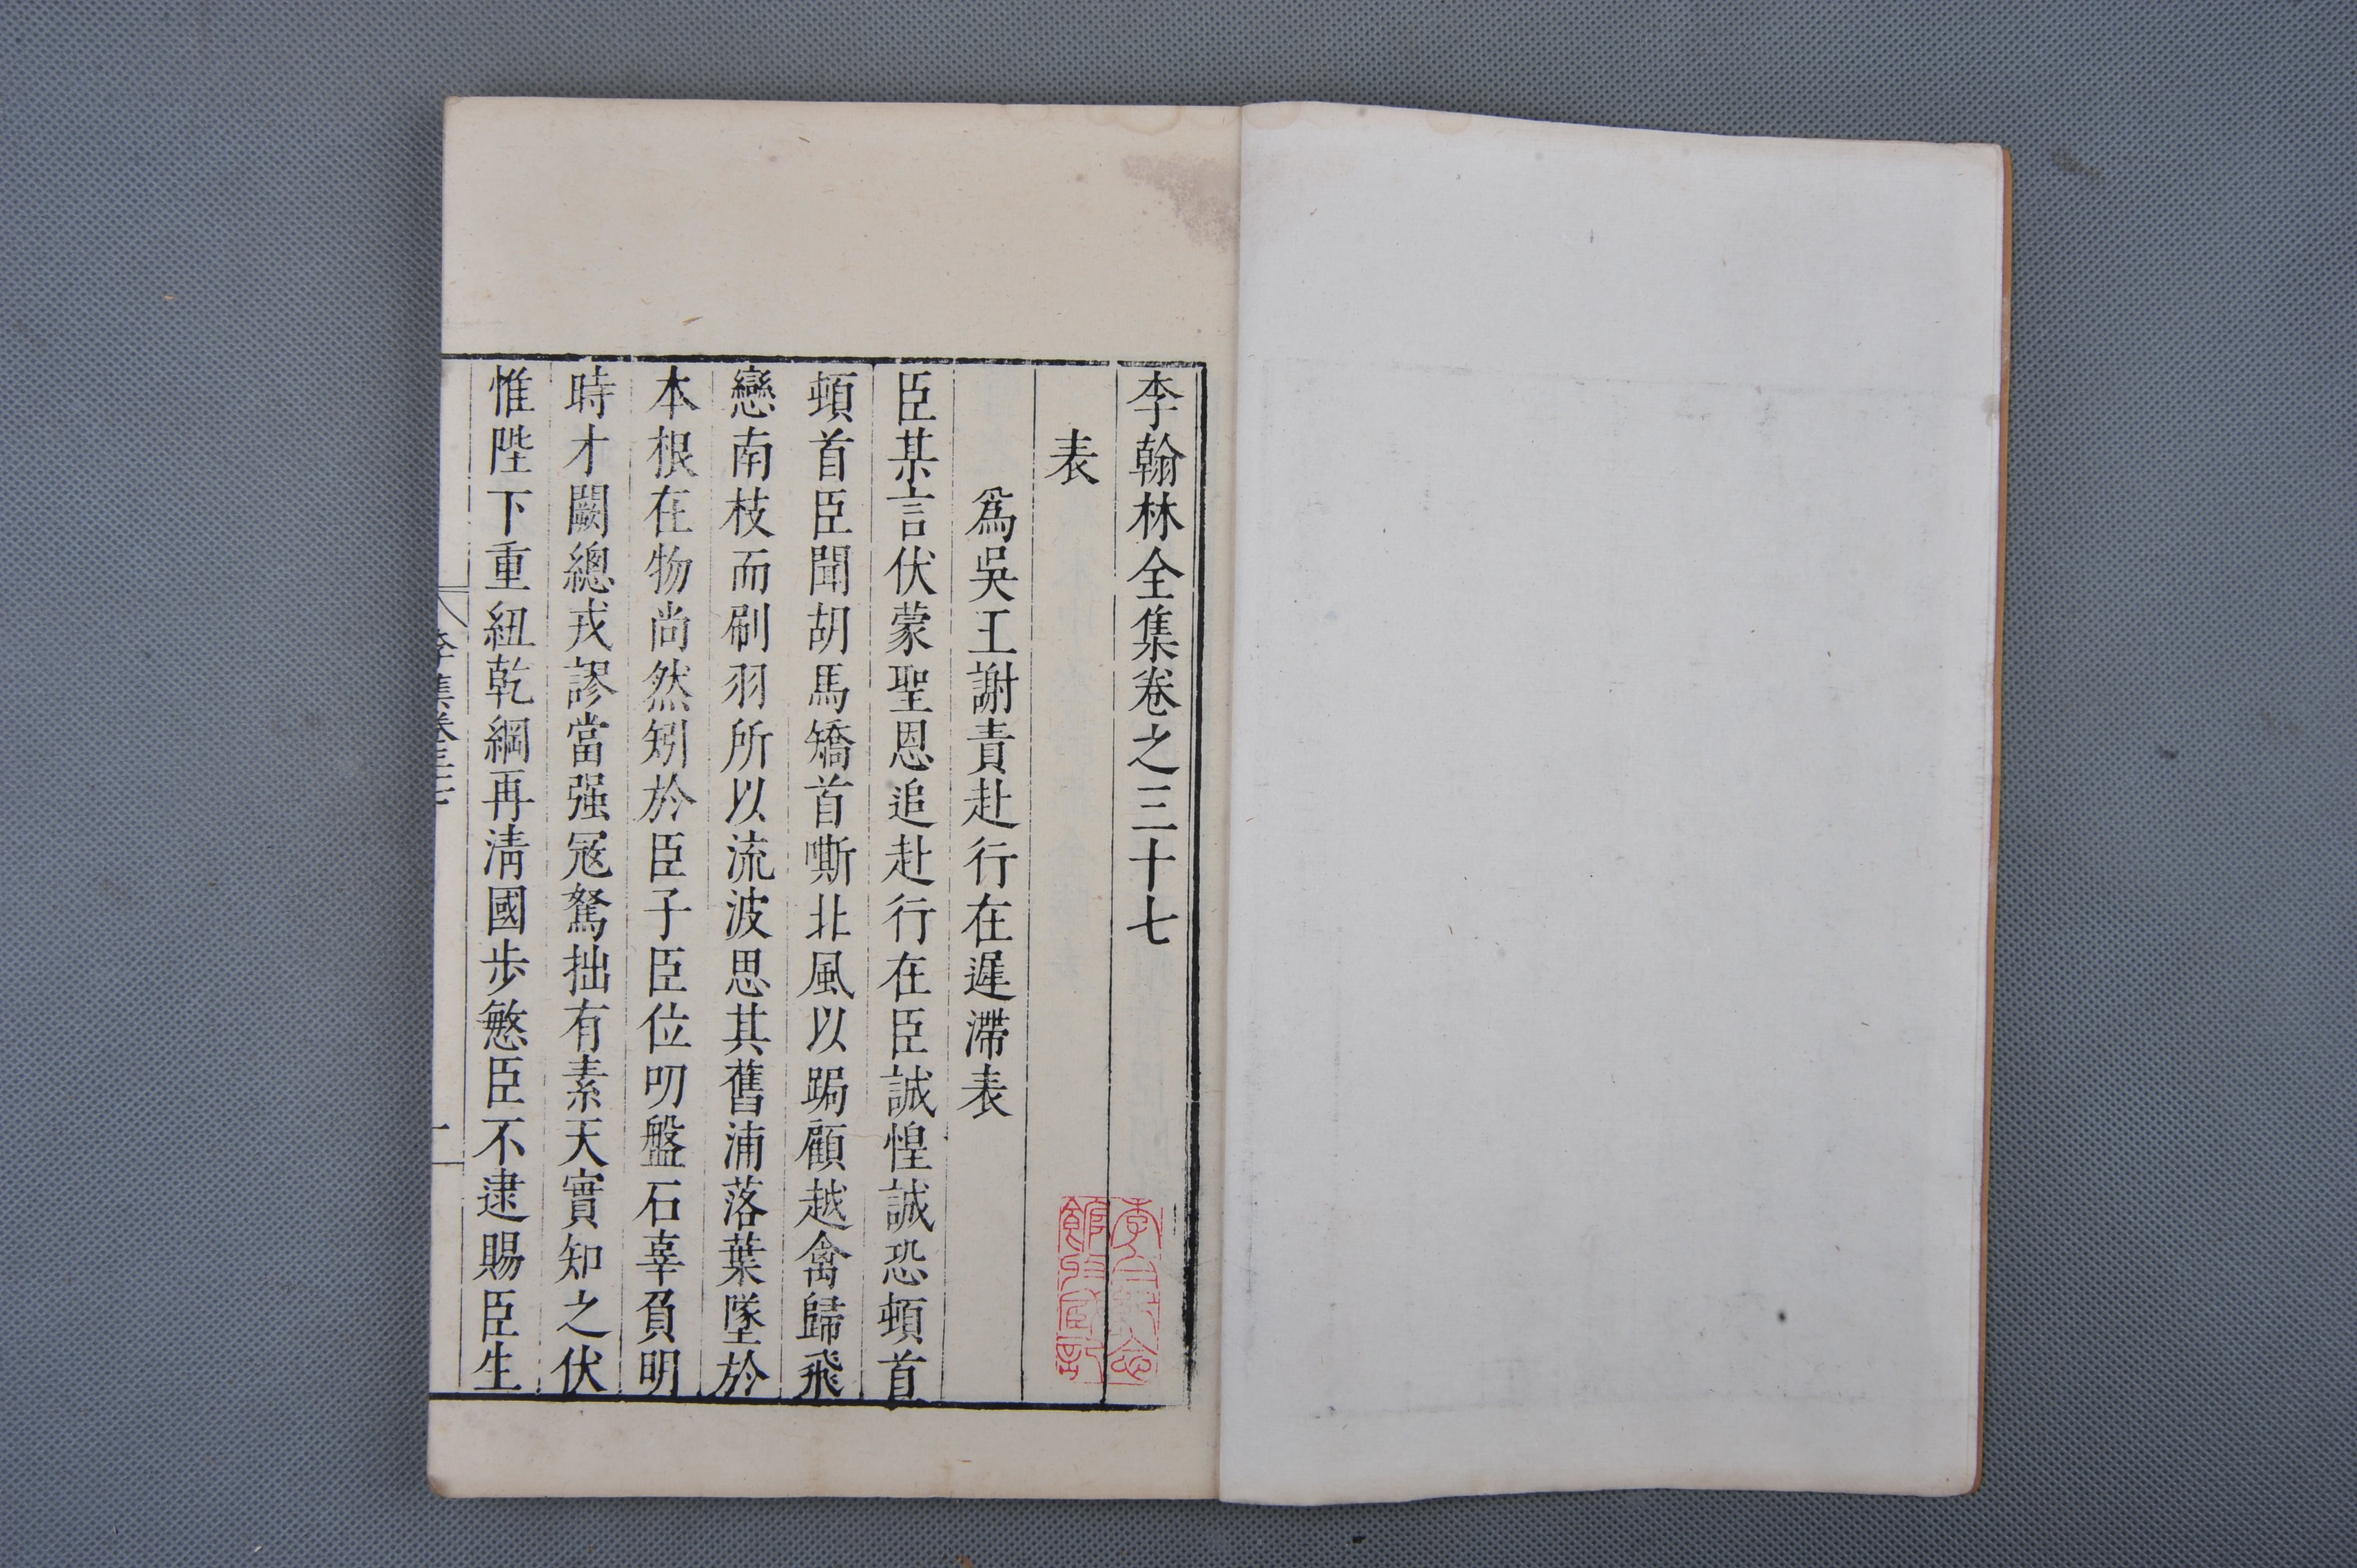 李翰林全集卷之三十七
表
爲吳王謝責赴行在遲滯表
臣某言伏蒙聖恩追赴行在臣誠惶誠恐頓首
頓首臣聞胡馬矯首嘶北風以跼顧越禽歸飛
戀南枝而刷羽所以流波思其舊浦落葉墜於
本根在物尚然矧於臣子臣位叨盤石辜負明
時才闕總戎謬當强冦駑拙有素天實知之伏
惟陛下重紐乾綱再淸國步慜臣不逮賜臣生
李集卷三十七
一
李白紀念
館珍藏記